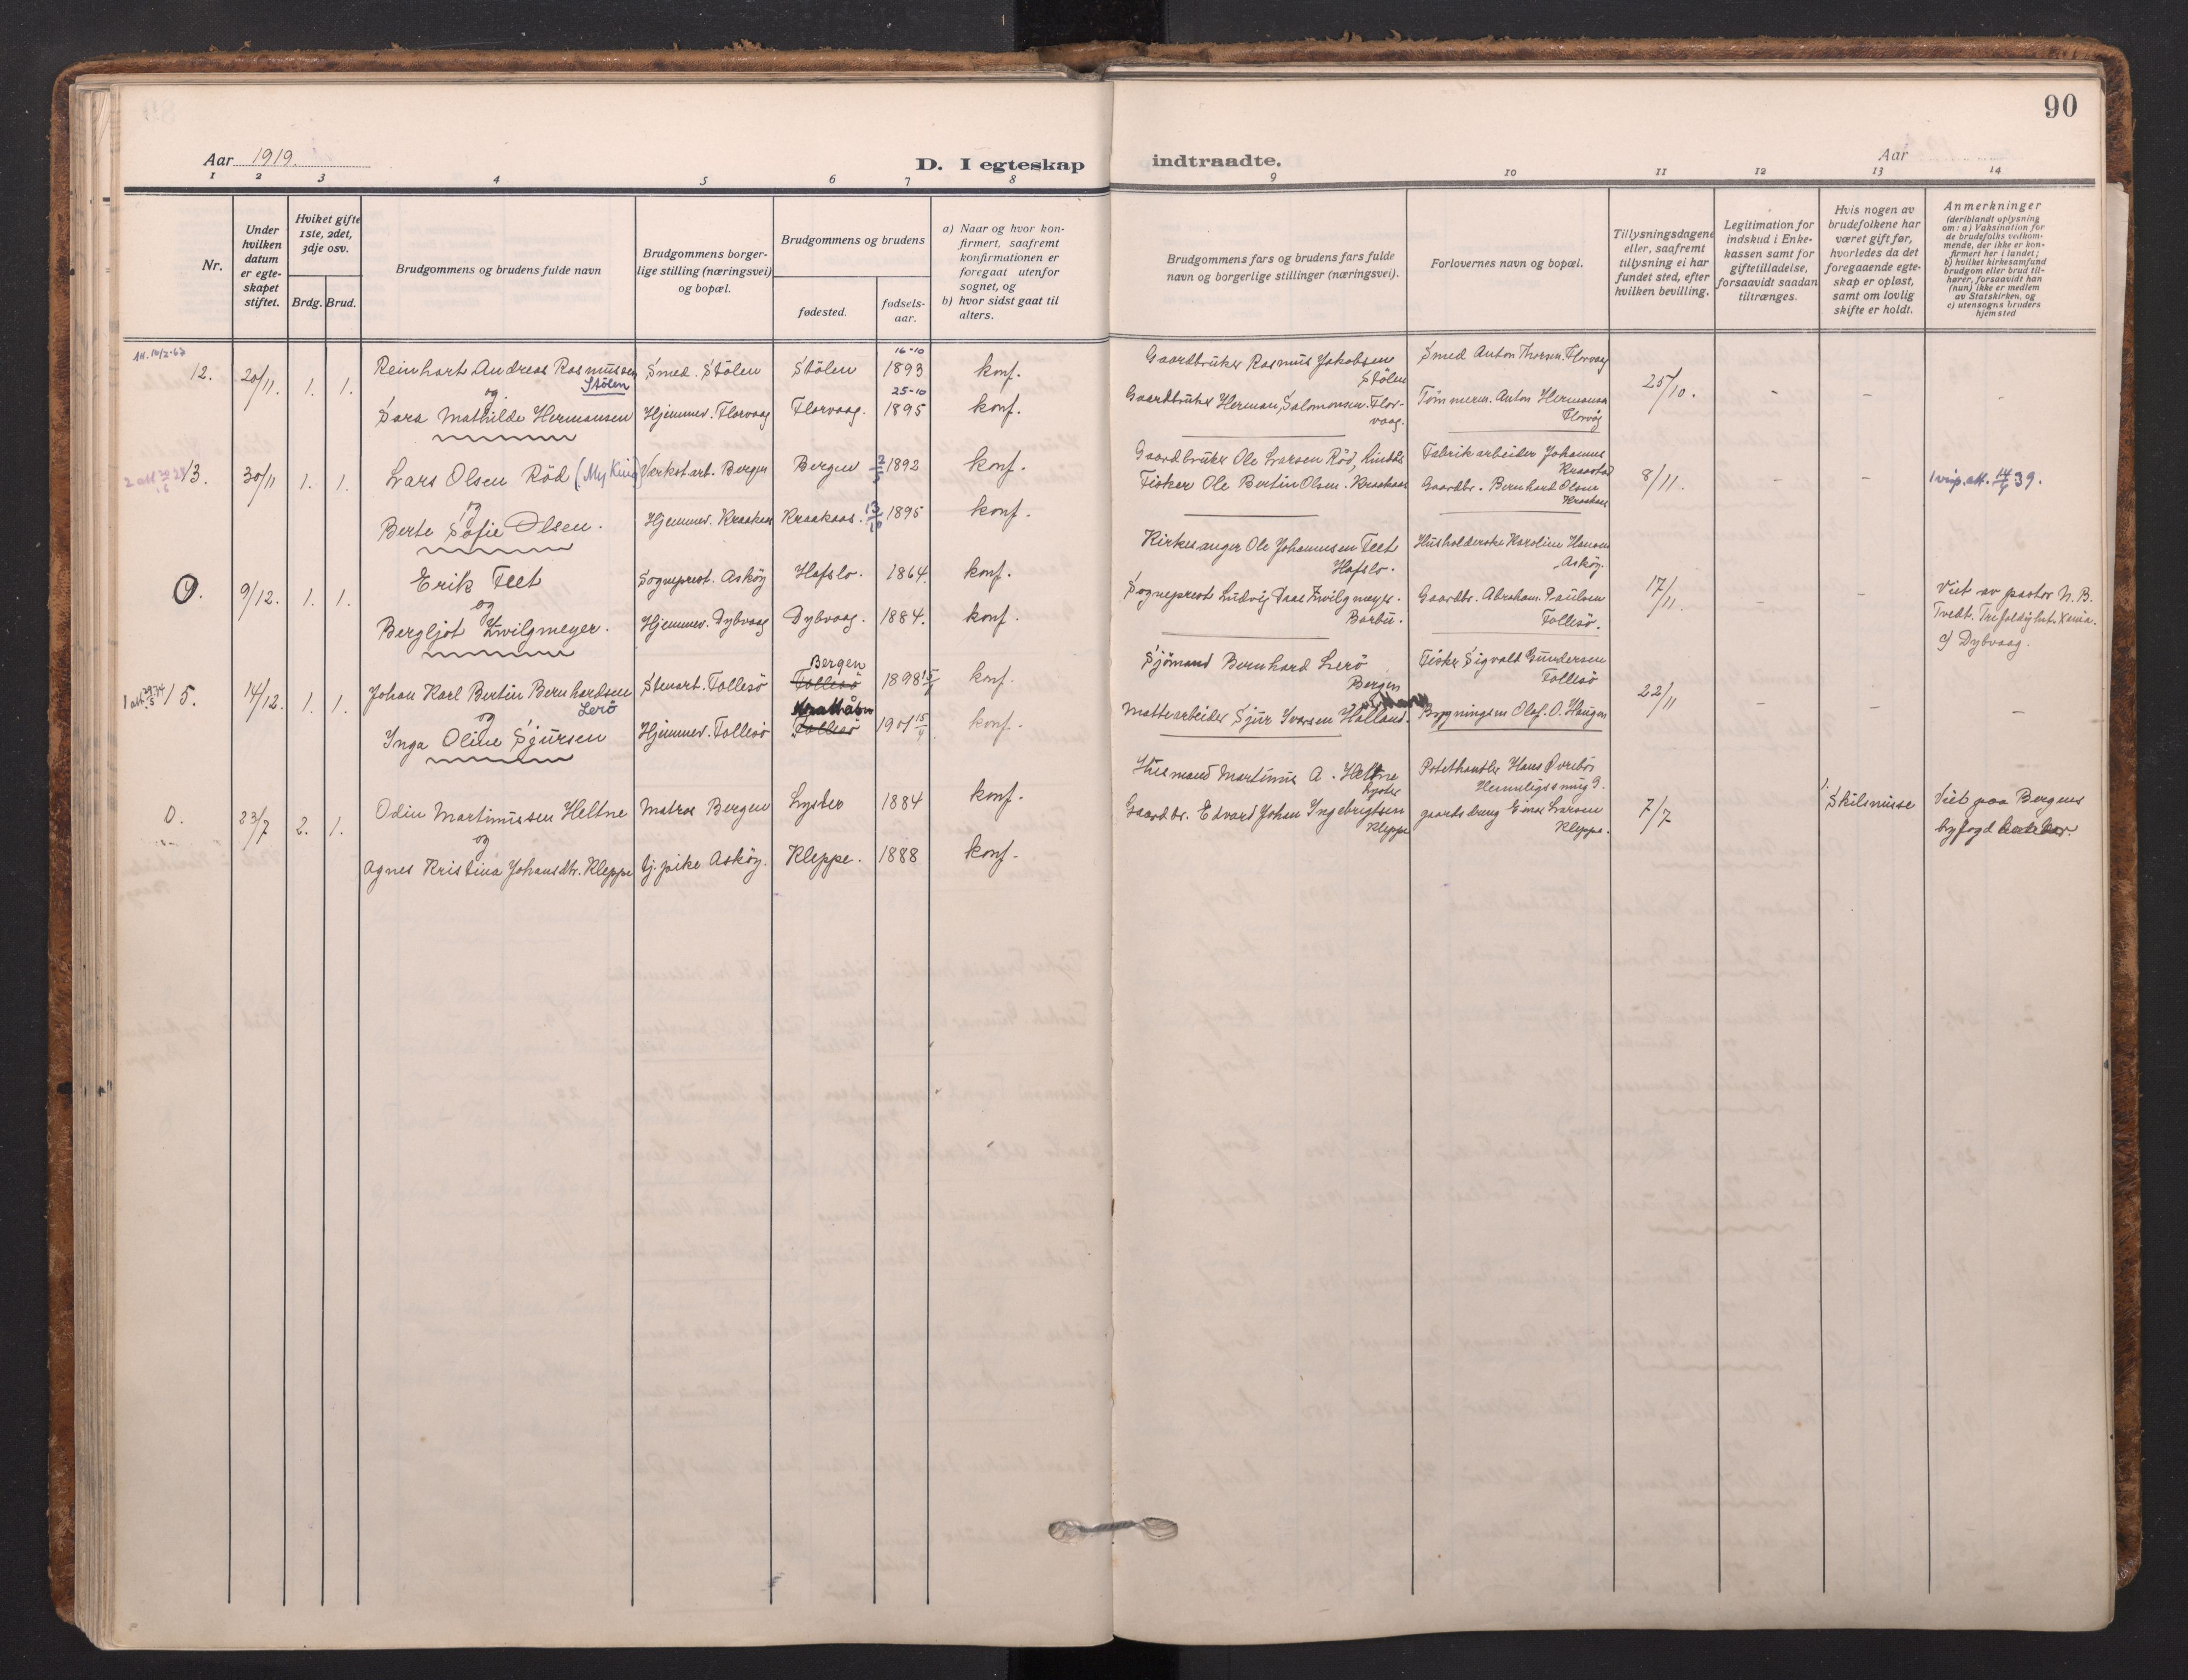 90
Aar 1919.
D. I egteskap indtraadte.
Aar
1 2 3 4 5 6 7 8 9 10 11 12 13 14
Nr.
Under hvilken datum er egteskapet stiftet.
Hvilket gifte 1ste, 2det, 3dje osv.
Brdg. Brud.
Brudgommens og brudens fulde navn
Brudgommens borgerlige stilling (næringsvei) og bopæl.
Brudgommens og brudens
fødested.
fødselsaar.
a) Naar og hvor konfirmert, saafremt konfirmationen er foregaat utenfor sognet, og
b) hvor sidst gaat til alters.
Brudgommens fars og brudens fars fulde navn og borgerlige stillinger (næringsvei).
Forlovernes navn og bopæl.
Tillysningsdagene eller, saafremt tillysning ei har fundet sted, efter hvilken bevilling.
Legitimation for indskud i Enkekassen samt for giftetilladelse, forsaavidt saadan tiltrænges.
Hvis nogen av brudefolkene har været gift før, hvorledes da det foregaaende egteskap er opløst, samt om lovlig skifte er holdt.
Anmerkninger
(deriblandt oplysning om: a) Vaksination for de brudefolks vedkommende, der ikke er konfirmert her i landet; b) hvilket kirkesamfund brudgom eller brud tilhører, forsaavidt han (hun) ikke er medlem av Statskirken, og c) utensogns bruders hjemsted
Att. 10/2-67
12. 20/11. 1. 1. Reinhart Andreas Rasmussen Stölen Smed. Stölen Stölen 16-10 1893 konf. Gaardbruker Rasmus Jakobsen Stölen Smed Anton Thorsen. Florvaag 25/10. -
og
Sara Mathilde Hermansen Hjemmev. Florvaag Florvaag. 25-10 1895 konf. Gaardbruker Herman Salomonsen. Florvaag. Tömmerm. Anton Hermansen Florvåg
13. 30/11 1. 1. Lars Olsen Röd Verkst.arb. Bergen Bergen 2/5 1892 konf. Gaardbruker Ole Larsen Röd, Fabrikarbeider Johannes 8/11. - - 1 vigs. att. 14/4 39.
og
Berte Sofie Olsen. Hjemmev. Kraakaas Kraakaas. 13/10 1895 konf. Fisker Ole Bertin Olsen. Kraakaas Gaardbr. Bernhard Olsen Kraakaas
9/12. 1. 1. Erik Feet Sogneprest. Asköy Hafslo. 1864. konf. Kirkesanger Ole Johannesen Feet Hafslo. Husholderske Karoline Hansen Asköy. 17/11. - - Viet av pastor N. B. Tvedt. Trefoldighet. Xania.
og
Bergljot Zwilgmeyer. Hjemmev. Dybvaag Dybvaag. 1884. konf. Sogneprest Ludvig Daae Zwilgmeyer. Barbu. Gaardbr. Abraham Paulsen Follesö. c) Dybvaag.
15. 14/12. 1. 1. Johan Karl Bertin Bernhardsen Lerö Stuart. Follesö Bergen Follesö 1898 konf. Sjömand Bernhard Lerö Bergen Fisker Sigvald Gundersen Follesö 22/11 - - -
og
Inga Oline Sjursen Hjemmev. Follesö Follesö 1901 15/4 konf. Mattearbeider Sjur Ivarsen Bygningsm. Olaf. O. Haugen
0. 23/7 2. 1. Odin Martinussen Heltne Matros Bergen Lyster 1884 konf. Husmand Martinus A. Heltne Lyster Potethandler Hans 7/7 Skilsmisse Viet paa Bergens byfogd
og
Agnes Kristina Johansdtr. Kleppe tj. pike Asköy. Kleppe. 1888 konf. Gaardbr. Edvard Johan Ingebrigtsen Kleppe gaardsdreng Einar Larsen Kleppe.